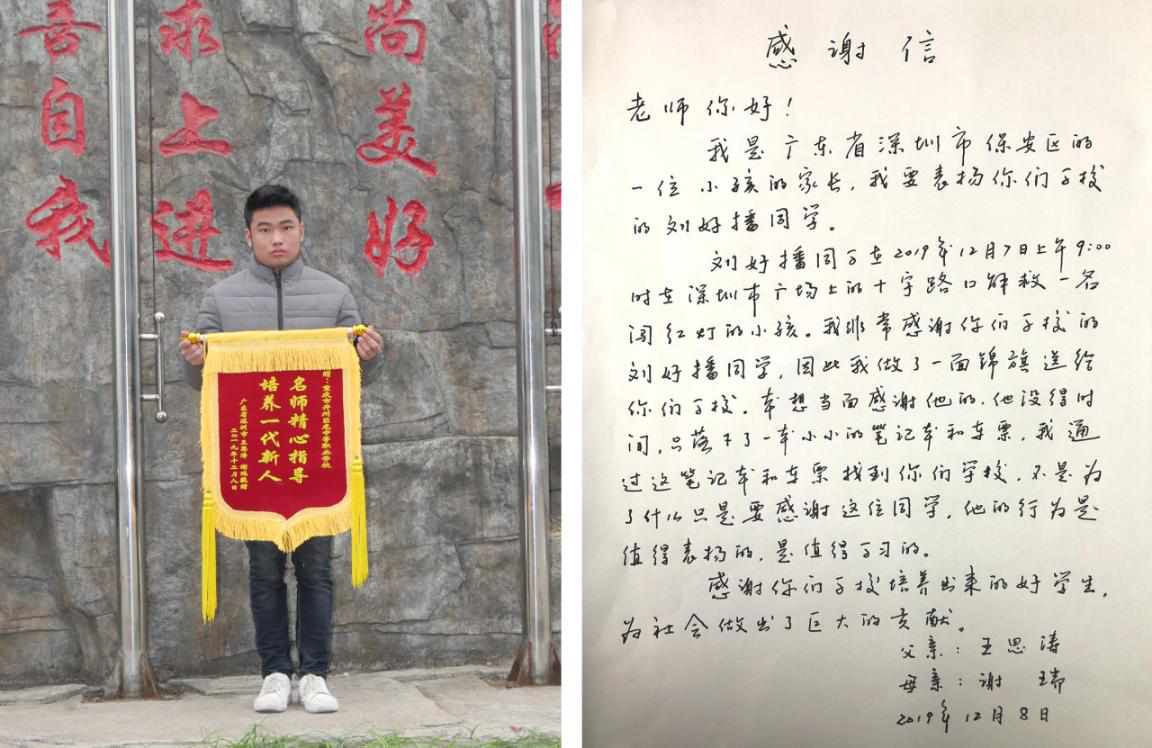 喜自我
求上进
尚美好
赠：重庆市开州巨龙中等职业学校
名师精心指导
培养一代新人
广东省深圳市王思涛 谢瑞敬赠
二〇一九年十二月八日
感谢信
老师你好！
我是广东省深圳市保安区的
一位小孩的家长，我要表扬你们学校
的刘好播同学。
刘好播同学在2019年12月7日上午9:00
时在深圳市广场上的十字路口解救一名
闯红灯的小孩。我非常感谢你们学校的
刘好播同学，因此我做了一面锦旗送给
你们学校。本想当面感谢他的，他没得时
间，只落下了一本小小的笔记本和车票，我通
过这笔记本和车票找到你们学校，不是为
了什么只是要感谢这位同学，他的行为是
值得表扬的，是值得学习的。
感谢你们学校培养出来的好学生，
为社会做出了巨大的贡献。
父亲：王思涛
母亲：谢瑞
2019年12月8日